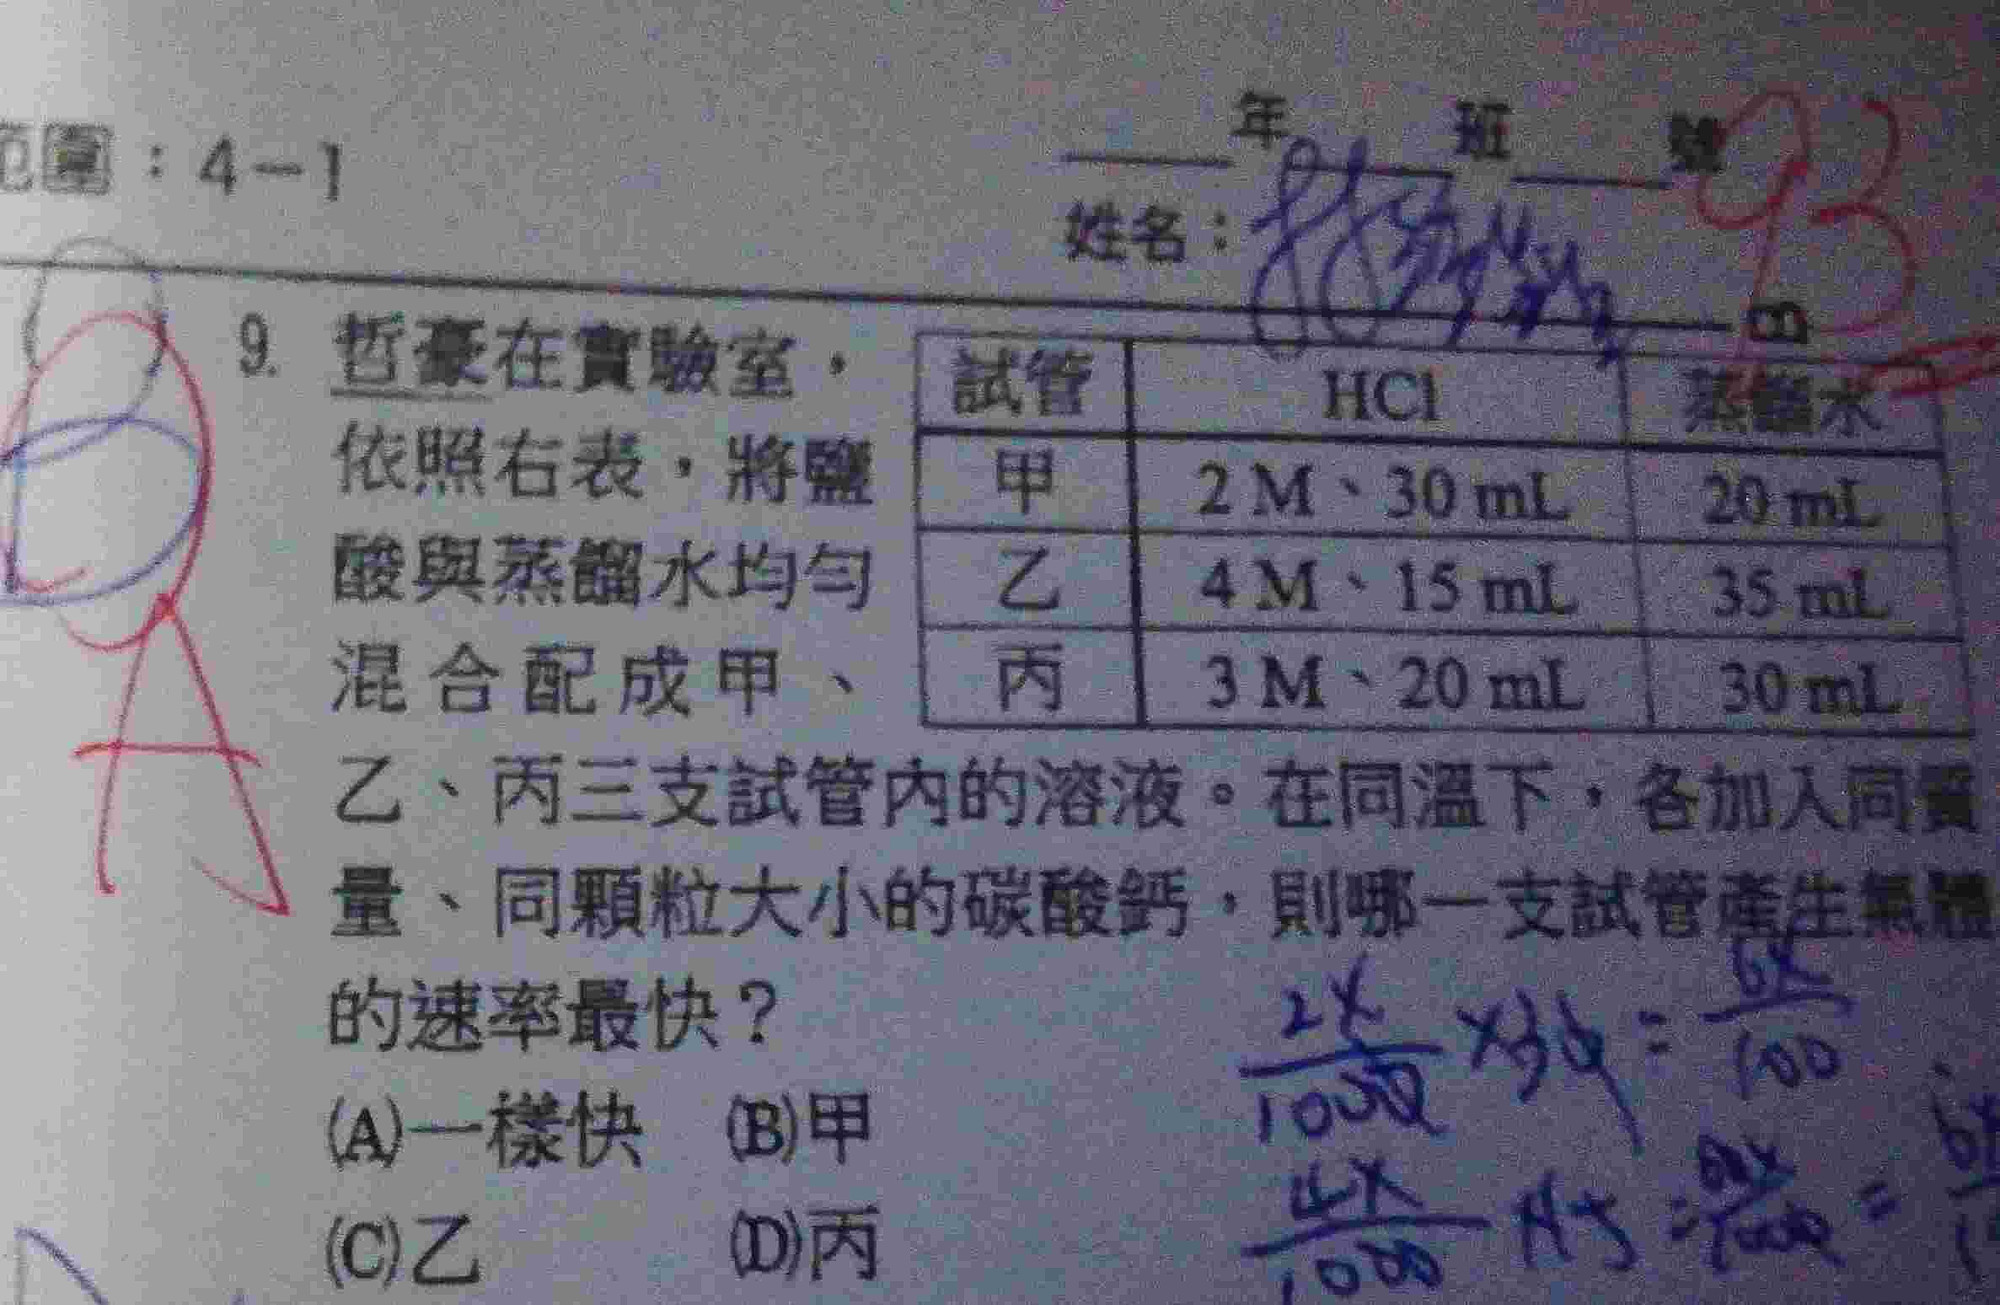 範圍：4－1
年 班 號
姓名：
93
9. 哲豪在實驗室，
依照右表，將鹽
酸與蒸餾水均勻
混合配成甲、
試管 HCl 蒸餾水
甲 2 M、30 mL 20 mL
乙 4 M、15 mL 35 mL
丙 3 M、20 mL 30 mL
乙、丙三支試管內的溶液。在同溫下，各加入同質
量、同顆粒大小的碳酸鈣，則哪一支試管產生氣體
的速率最快？
(A)一樣快 (B)甲
(C)乙 (D)丙
A
2X/1000 ×30 = 6X/100
4X/1000